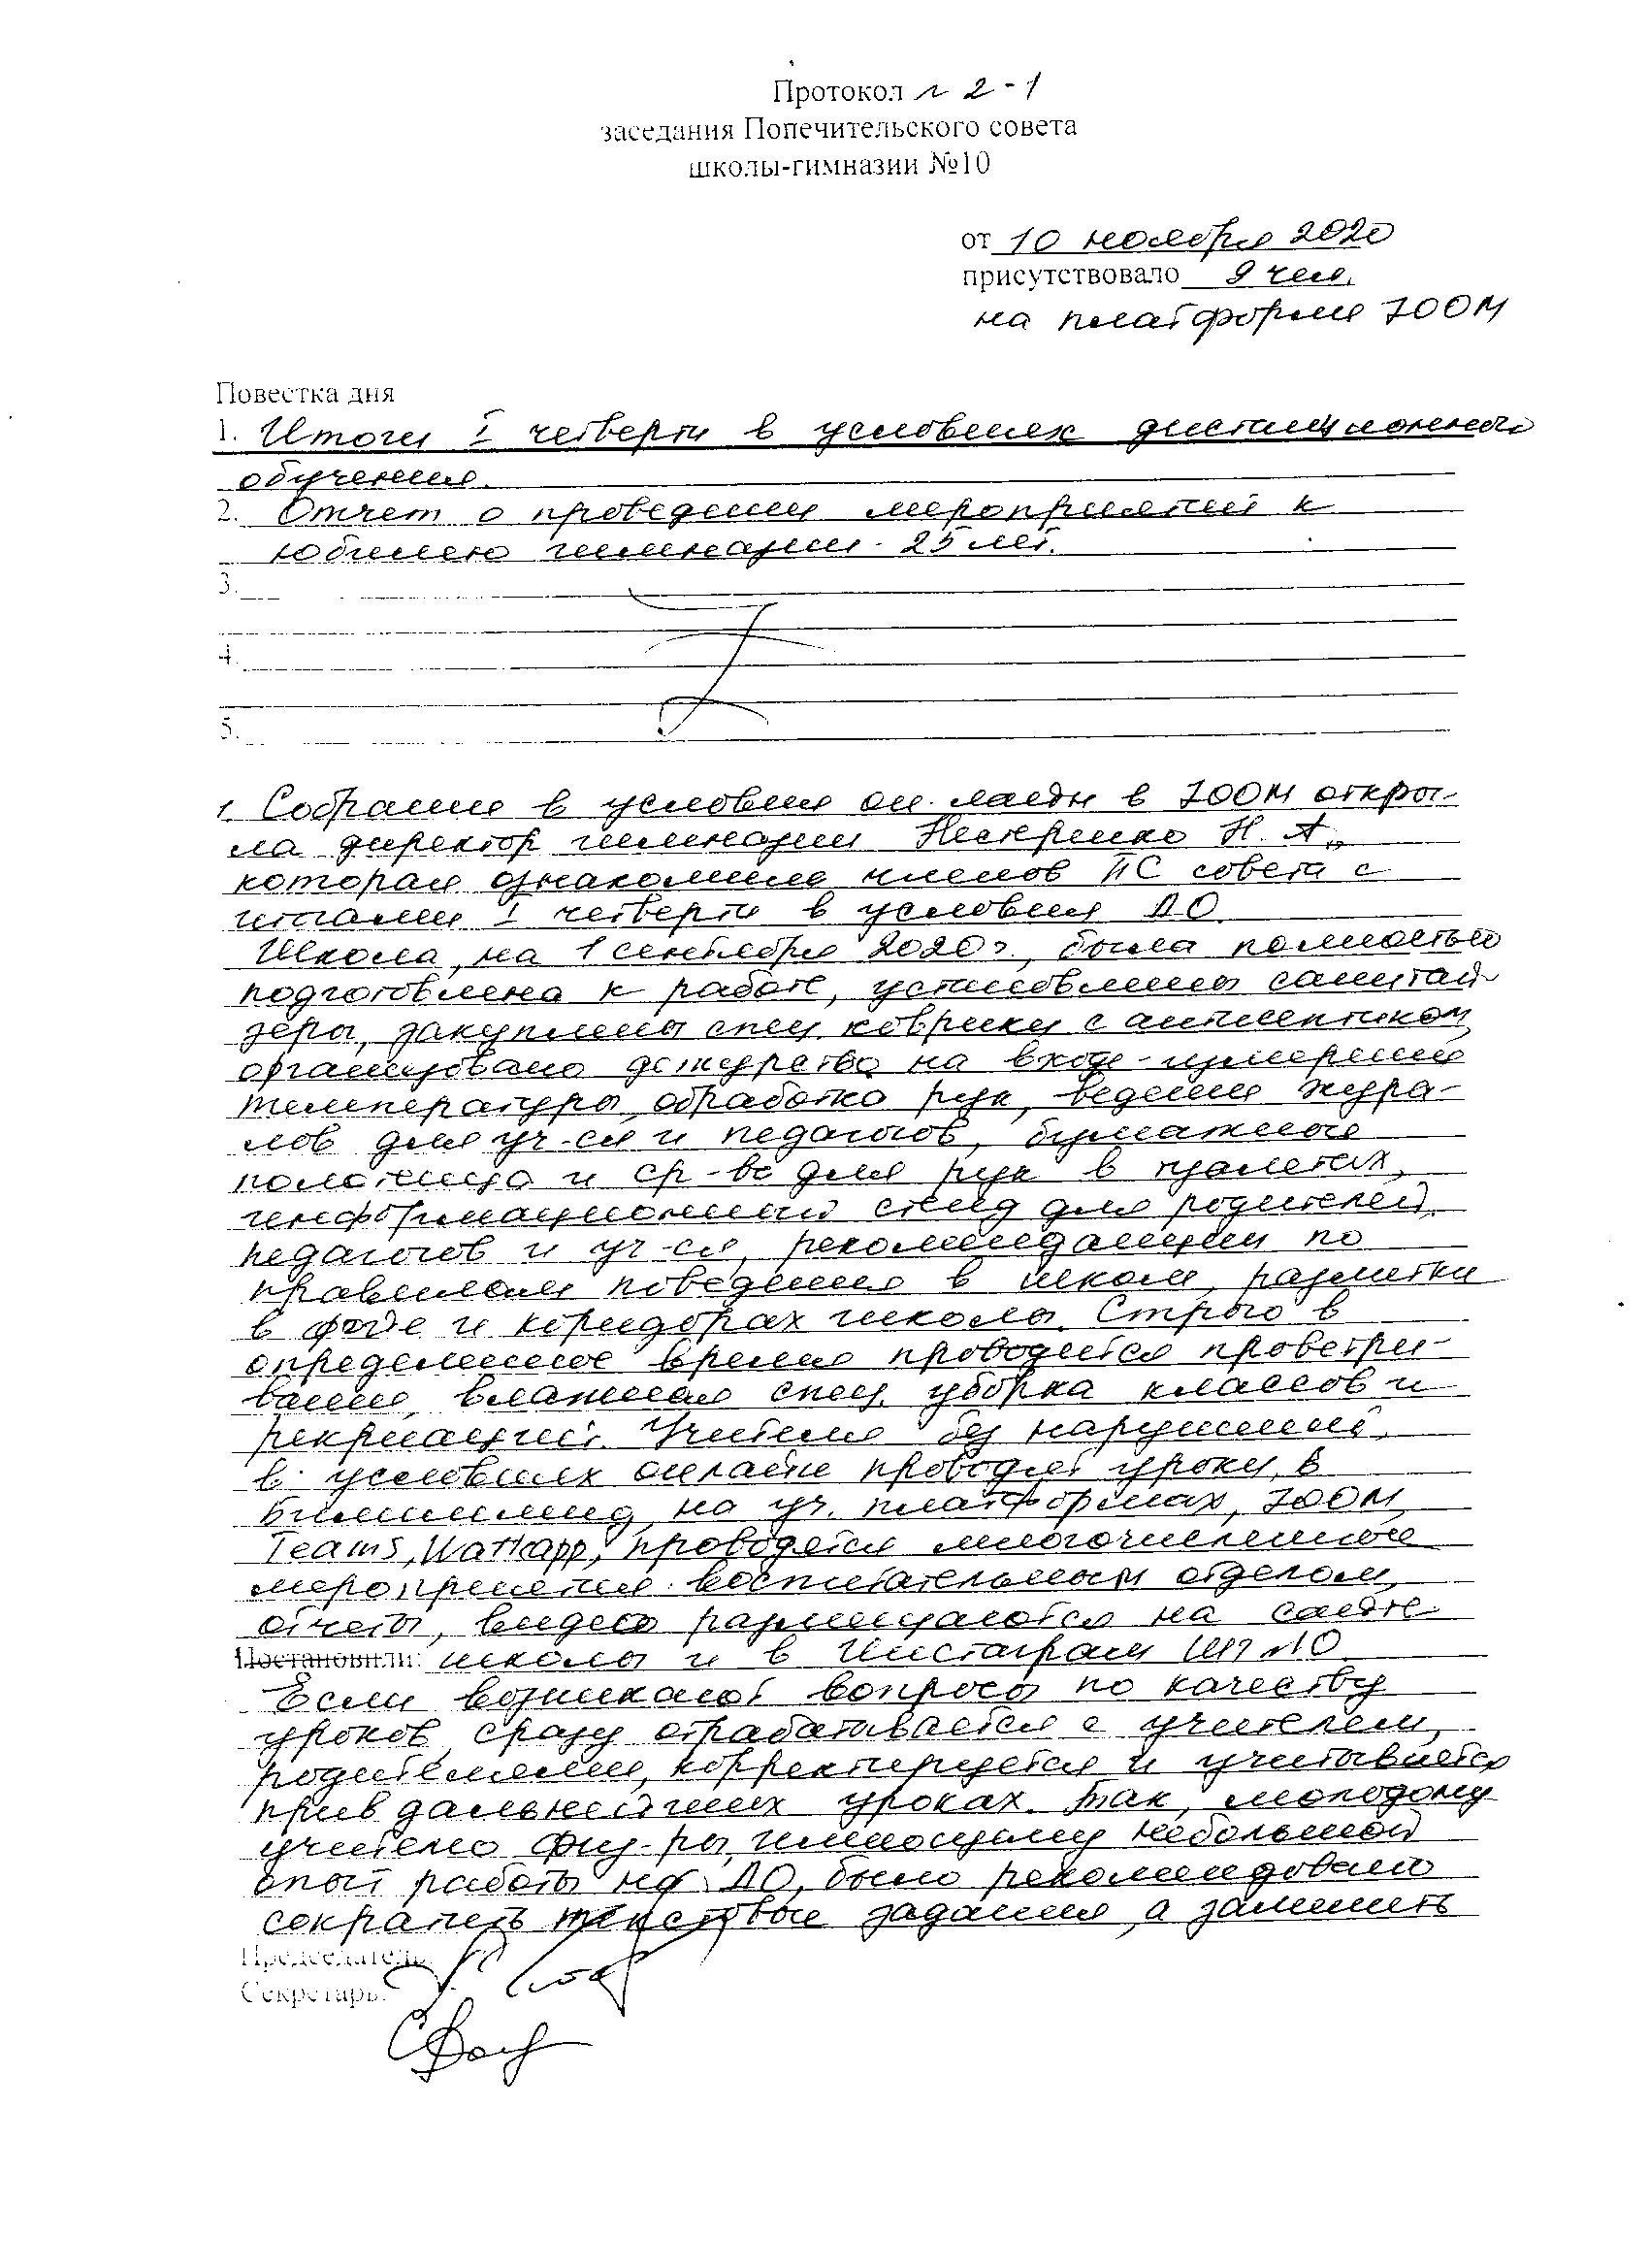 Протокол № 2-1
заседания Попечительского совета
школы-гимназии №10
от 10 ноября 2020
присутствовало 9 чел.
на платформе ZOOM
Повестка дня
1. Итоги I четверти в условиях дистанционного
обучения.
2. Отчет о проведении мероприятий к
юбилею гимназии - 25 лет.
3.
4.
5.
1. Собрание в условия он-лайн в ZOOM откры-
ла директор гимназии Н. А.,
которая ознакомила членов ПС совета с
итогами I четверти в условия ДО.
Школа, на 1 сентября 2020 г., была полностью
подготовлена к работе, установлены санитай-
зеры, закуплены спец. коврики с антисептиком,
организовано дежурство на входе - измерение
температуры, обработка рук, ведение журна-
лов для уч-ся и педагогов, бумажные
полотенца и ср-во для рук в туалетах,
информационный стенд для родителей,
педагогов и уч-ся, рекомендации по
правилам поведения в школе, разметки
в фойе и коридорах школы. Строго в
определенное время проводится проветри-
вание, влажная спец. уборка классов и
рекреаций. Учителя без нарушений,
в условиях онлайн проводят уроки, в
Билимленд, на уч. платформах, ZOOM,
Teams, Watsapp, проводятся многочисленные
мероприятия воспитательным отделом,
отчеты, видео размещаются на сайте
Постановили: школы и в Инстаграм ШГ №10
Если возникают вопросы по качеству
уроков, сразу отрабатывается с учителем,
родителями, корректируется и учитывается
при в дальнейших уроках. Так, молодому
учителю физ-ры, имеющему небольшой
опыт работы на ДО, было рекомендовано
сократить текстовые задания, а заменить
Председатель:
Секретарь: